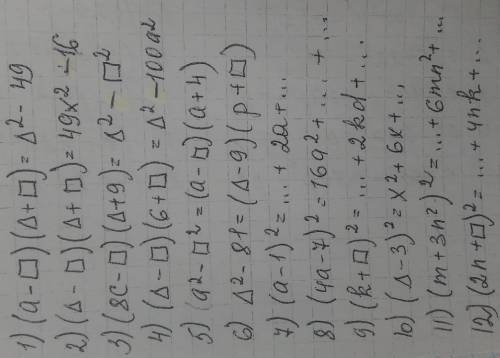 1) (a-□)(Δ+□)=Δ²-49
2) (Δ-□)(Δ+□)=49x²-16
3) (8c-□)(Δ+9)=Δ²-□²
4) (Δ-□)(6+□)=Δ²-100a²
5) a²-□²=(a-□)(a+4)
6) Δ²-81=(Δ-9)(p+□)
7) (a-1)²=...+2a+...
8) (4a-7)²=16a²+...+...
9) (k+□)²=...+2kd+...
10) (Δ-3)²=x²+6x+...
11) (m+3n²)²=...+6mn²+...
12) (2n+□)²=...+4nk+...